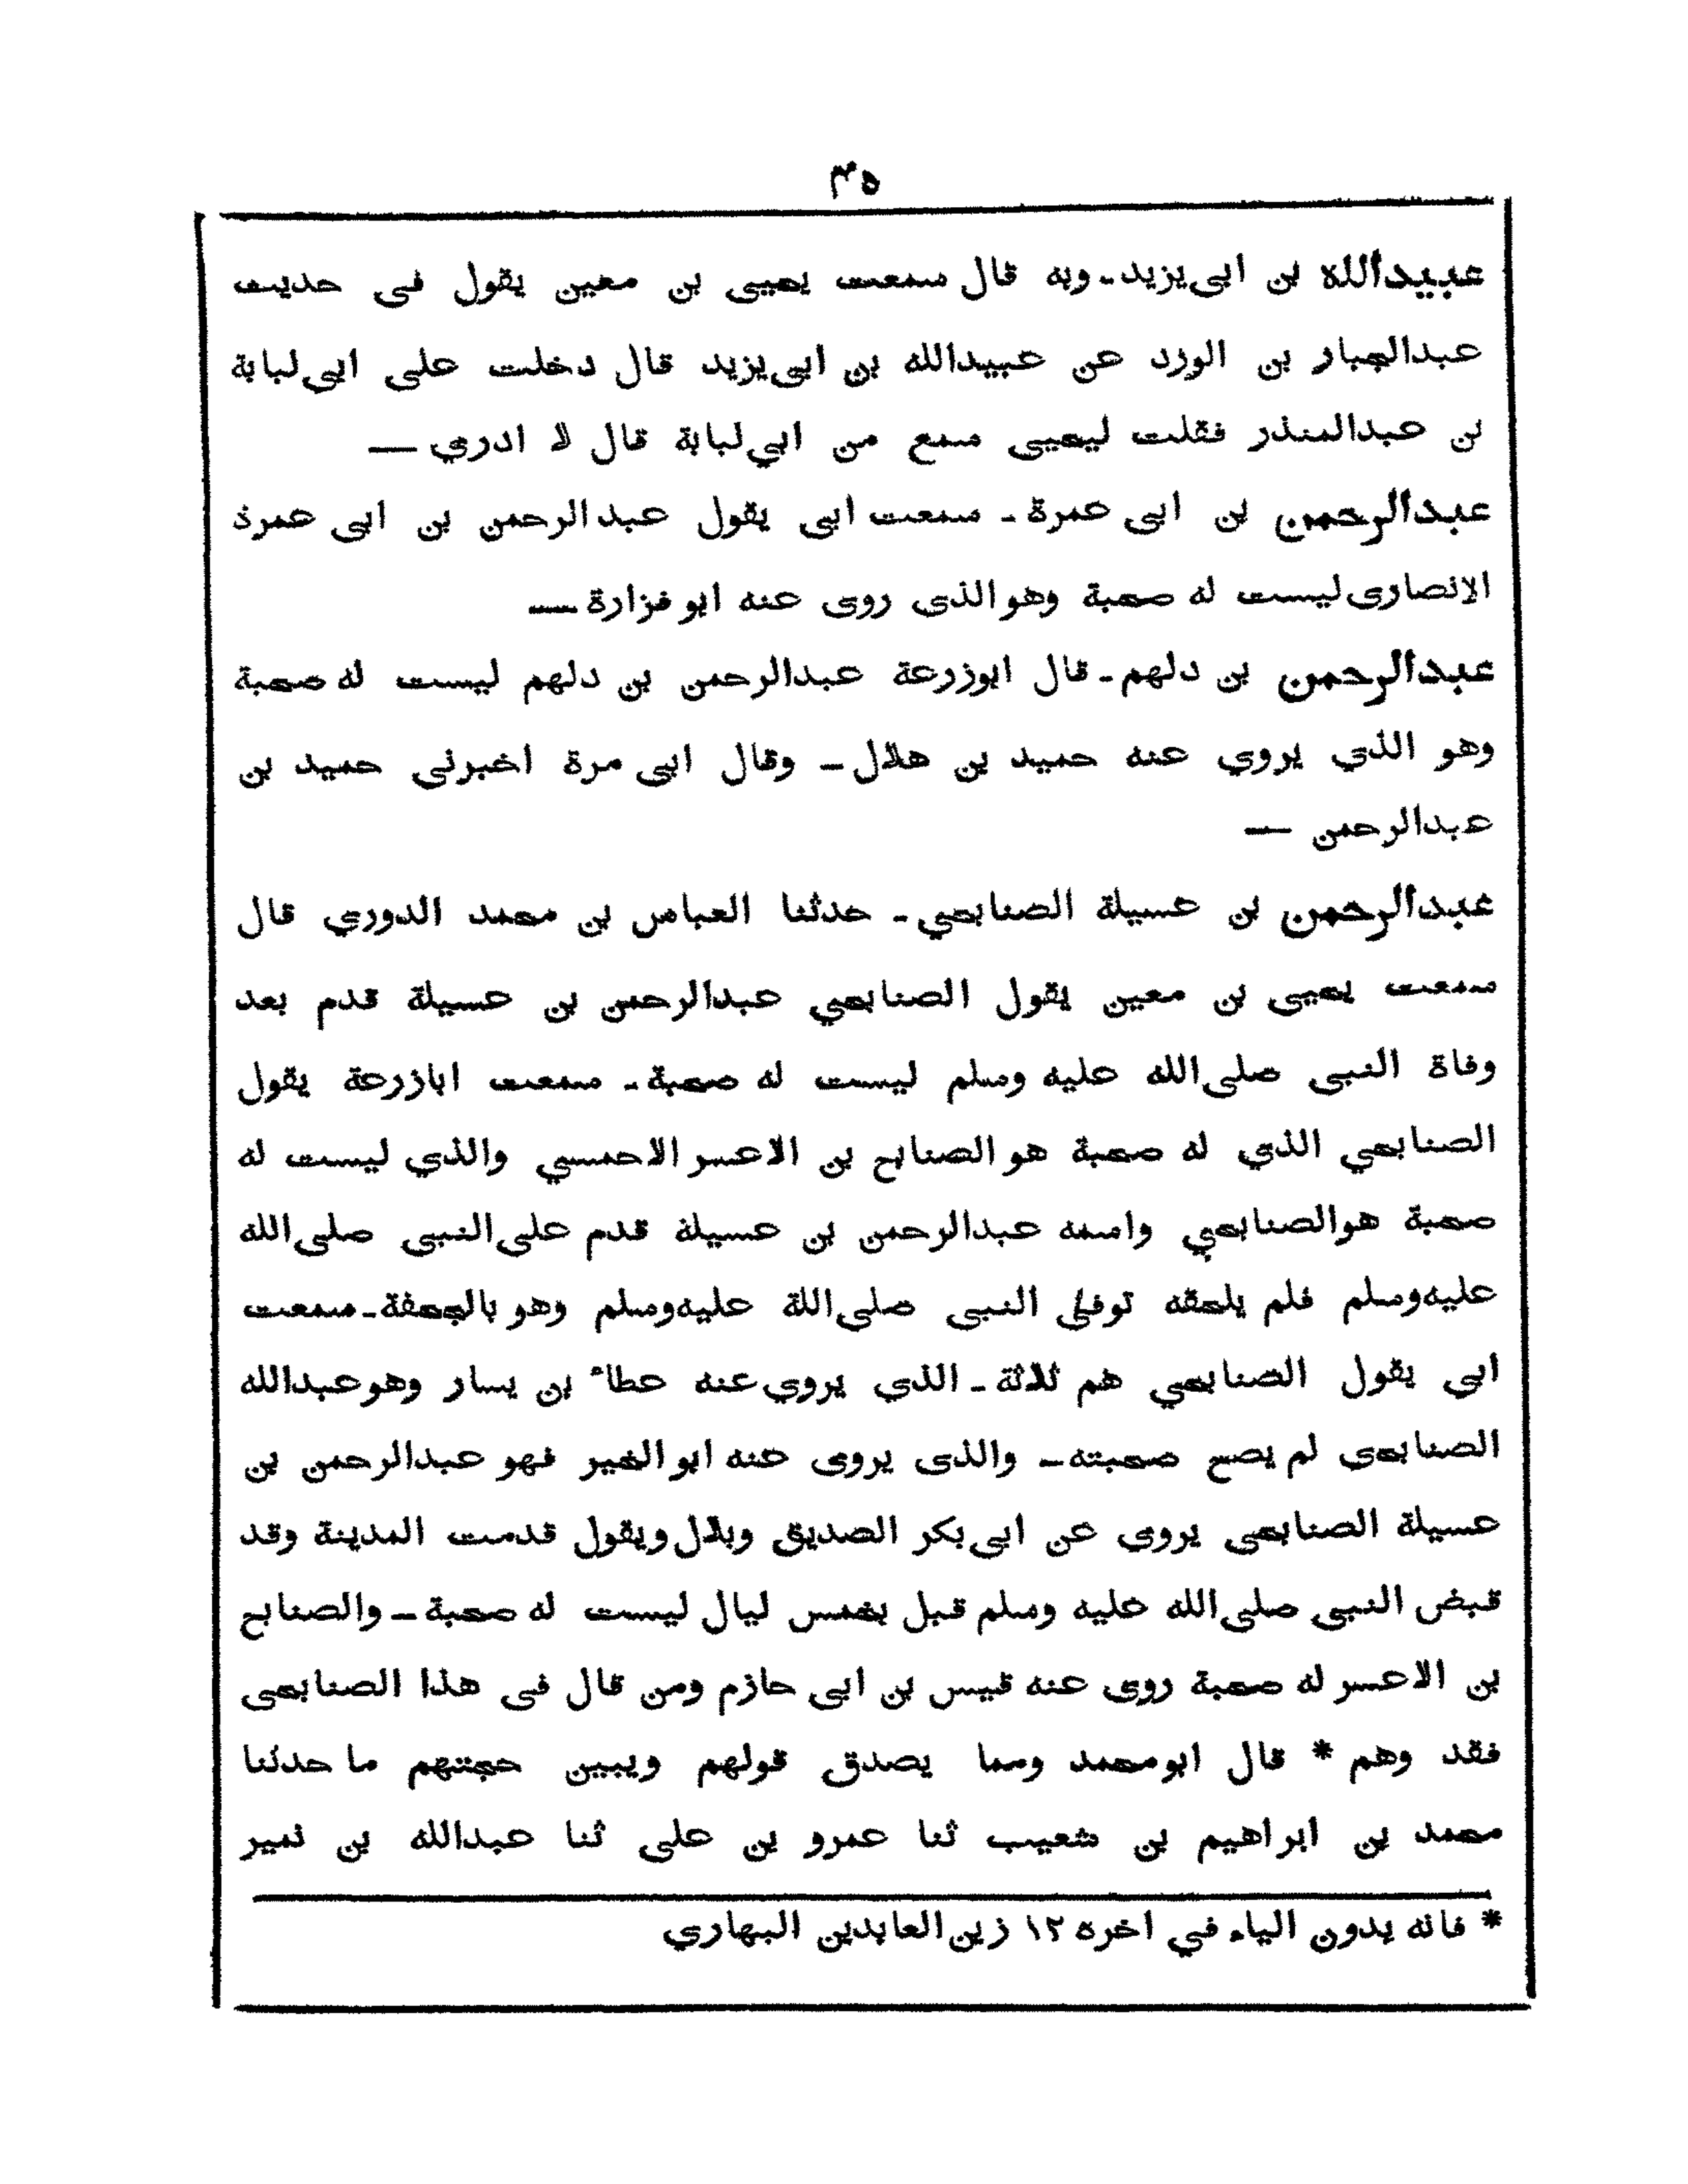 ٤٥
عبيدالله بن ابى يزيد ـ وبه قال سمعت يحيى بن معين يقول فى حديث
عبدالجبار بن الورد عن عبيدالله بن ابى يزيد قال دخلت على ابى لبابة
بن عبدالمنذر فقلت ليحيى سمع من ابي لبابة قال لا ادري —
عبدالرحمن بن ابى عمرة ـ سمعت ابى يقول عبدالرحمن بن ابى عمرة
الانصارى ليست له صحبة وهو الذى روى عنه ابو فزارة —
عبدالرحمن بن دلهم ـ قال ابوزرعة عبدالرحمن بن دلهم ليست له صحبة
وهو الذي يروي عنه حميد بن هلال ـ وقال ابى مرة اخبرنى حميد بن
عبدالرحمن —
عبدالرحمن بن عسيلة الصنابحي ـ حدثنا العباس بن محمد الدوري قال
سمعت يحيى بن معين يقول الصنابحي عبدالرحمن بن عسيلة قدم بعد
وفاة النبى صلى الله عليه وسلم ليست له صحبة ـ سمعت ابازرعة يقول
الصنابحي الذي له صحبة هو الصنابح بن الاعسر الاحمسي والذي ليست له
صحبة هوالصنابحي واسمه عبدالرحمن بن عسيلة قدم على النبى صلى الله
عليه وسلم فلم يلحقه توفى النبى صلى اللة عليه وسلم وهو بالجحفة ـ سمعت
ابى يقول الصنابحي هم ثلاثة ـ الذى يروي عنه عطاء بن يسار وهو عبدالله
الصنابحى لم يصح صحبته ـ والذى يروى عنه ابو الخير فهو عبدالرحمن بن
عسيلة الصنابحى يروى عن ابى بكر الصديق وبلال ويقول قدمت المدينة وقد
قبض النبى صلى الله عليه وسلم قبل بخمس ليال ليست له صحبة ـ والصنابح
بن الاعسر له صحبة روى عنه قيس بن ابى حازم ومن قال فى هذا الصنابحى
فقد وهم * قال ابومحمد ومما يصدق قولهم ويبين حجتهم ما حدثنا
محمد بن ابراهيم بن شعيب ثنا عمرو بن على ثنا عبدالله بن نمير
* فانه بدون الياء في اخره ١٢ زين العابدين البهاري